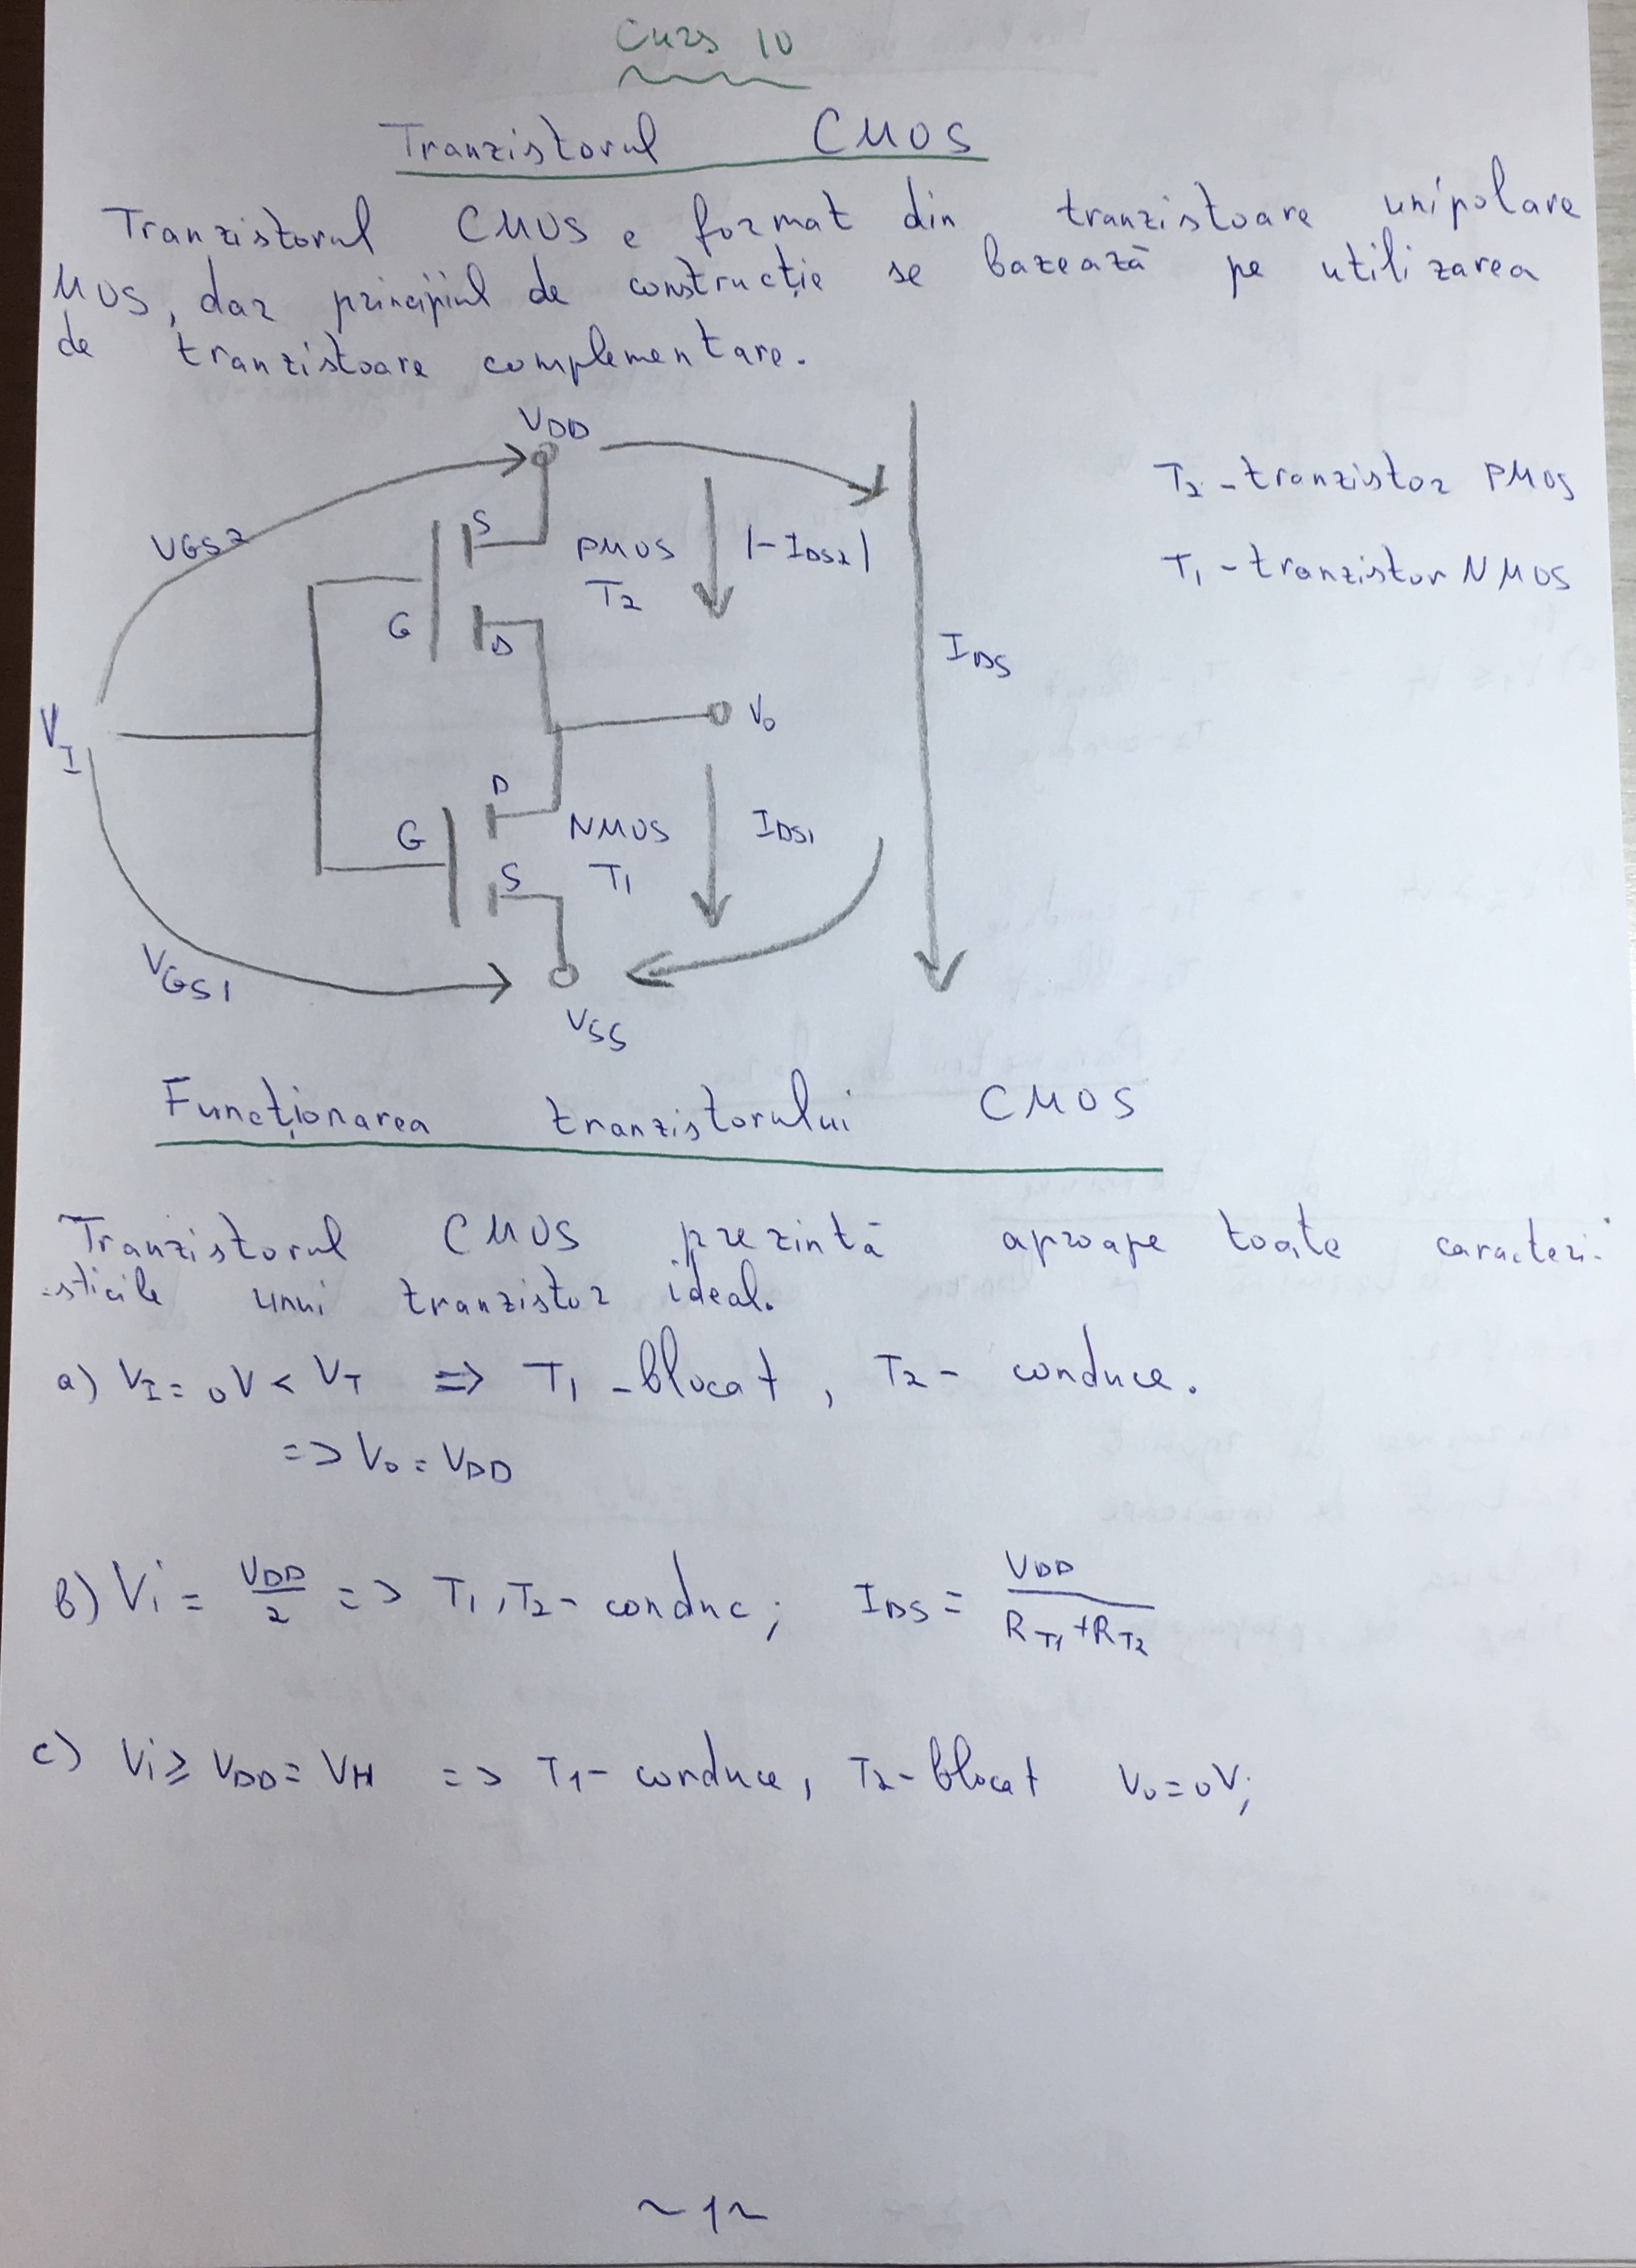 Curs 10
Tranzistorul CMOS
Tranzistorul CMOS e format din tranzistoare unipolare
MOS, dar principiul de construcție se bazează pe utilizarea
de tranzistoare complementare.
VDD
T2 - tranzistor PMOS
VGS2
S
PMOS
T2
|-IDS2|
T1 - tranzistor NMOS
G
D
IDS
VI
V0
D
G
NMOS
T1
IDS1
S
VGS1
VSS
Funcționarea tranzistorului CMOS
Tranzistorul CMOS prezintă aproape toate caracteri-
-sticile unui tranzistor ideal.
a) VI = 0V < VT => T1 - blocat, T2 - conduce.
=> V0 = VDD
b) Vi = VDD/2 => T1, T2 - conduc; IDS = VDD/(RT1+RT2)
c) Vi ≥ VDD = VH => T1 - conduce, T2 - blocat V0 = 0V;
~1~